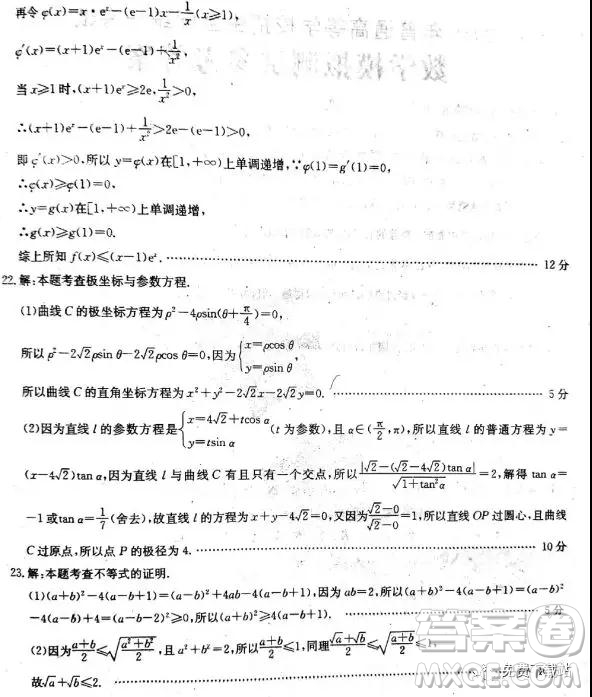 再令φ(x)=x·eˣ-(e-1)x-1/x(x⩾1),
φ′(x)=(x+1)eˣ-(e-1)+1/x²,
当x⩾1时,(x+1)eˣ⩾2e,1/x²>0,
∴(x+1)eˣ-(e-1)+1/x²>2e-(e-1)>0,
即φ′(x)>0,所以y=φ(x)在[1,+∞)上单调递增,∵φ(1)=g′(1)=0,
∴φ(x)⩾φ(1)=0,
∴y=g(x)在[1,+∞)上单调递增,
∴g(x)⩾0.
综上所知f(x)⩽(x-1)eˣ. 12分
22.解:本题考查极坐标与参数方程.
(1)曲线C的极坐标方程为ρ²-4ρsin(θ+π/4)=0,
所以ρ²-2√2ρsin θ-2√2ρcos θ=0,因为{x=ρcos θ y=ρsin θ,
所以曲线C的直角坐标方程为x²+y²-2√2x-2√2y=0. 5分
(2)因为直线l的参数方程是{x=4√2+tcos α y=tsin α(t为参数),且α∈(π/2,π),所以直线l的普通方程为y=
(x-4√2)tan α,因为直线l与曲线C有且只有一个交点,所以|√2-(√2-4√2)tan α|/√(1+tan²α)=2,解得tan α=
-1或tan α=1/7(舍去),故直线l的方程为x+y-4√2=0,又因为(√2-0)/(√2-0)=1,所以直线OP过圆心,且曲线
C过原点,所以点P的极径为4. 10分
23.解:本题考查不等式的证明.
(1)(a+b)²-4(a-b+1)=(a-b)²+4ab-4(a-b+1),因为ab=2,所以(a+b)²-4(a-b+1)=(a-b)²
-4(a-b)+4=(a-b-2)²⩾0,所以(a+b)²⩾4(a-b+1). 5分
(2)因为(a+b)/2⩽√((a²+b²)/2),且a²+b²=2,所以(a+b)/2⩽1,所以,同理(√a+√b)/2⩽√((a+b)/2)⩽1,
故√a+√b⩽2.